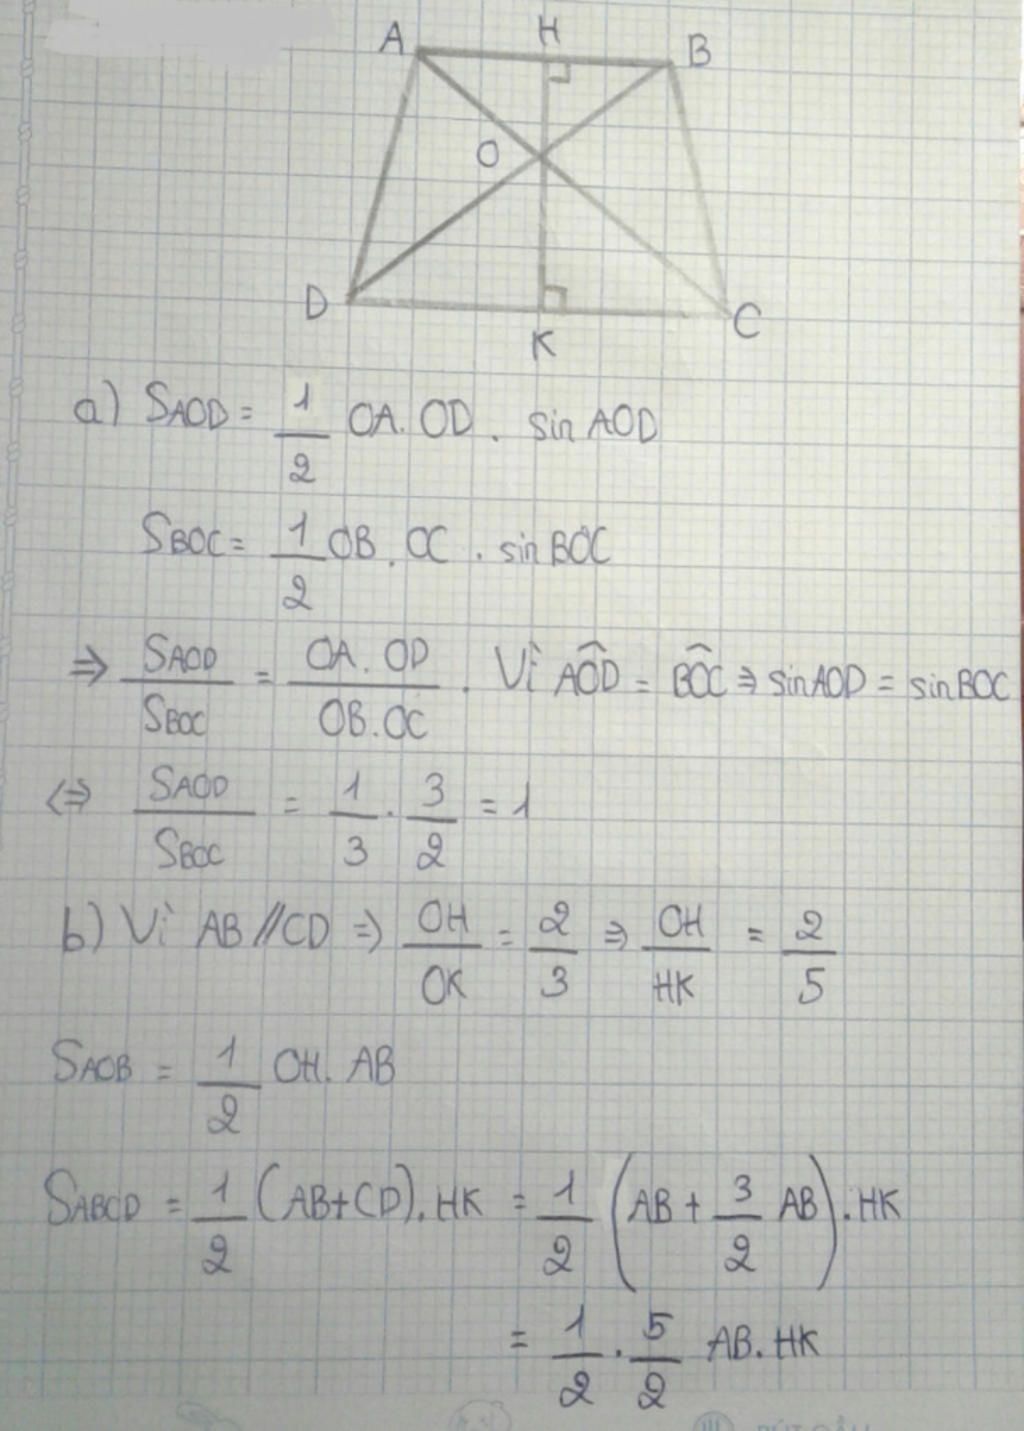 A H B
O
D K C
a) SAOD = 1/2 OA. OD . sin AOD
SBOC = 1/2 OB. OC . sin BOC
⇒ SAOD/SBOC = OA. OD/OB. OC . Vì AÔD = BÔC ⇒ sin AOD = sin BOC
⇔ SAOD/SBOC = 1/3 . 3/2 = 1
b) Vì AB // CD ⇒ OH/OK = 2/3 ⇒ OH/HK = 2/5
SAOB = 1/2 OH. AB
SABCD = 1/2 (AB+CD). HK = 1/2 (AB + 3/2 AB). HK
= 1/2 . 5/2 AB. HK